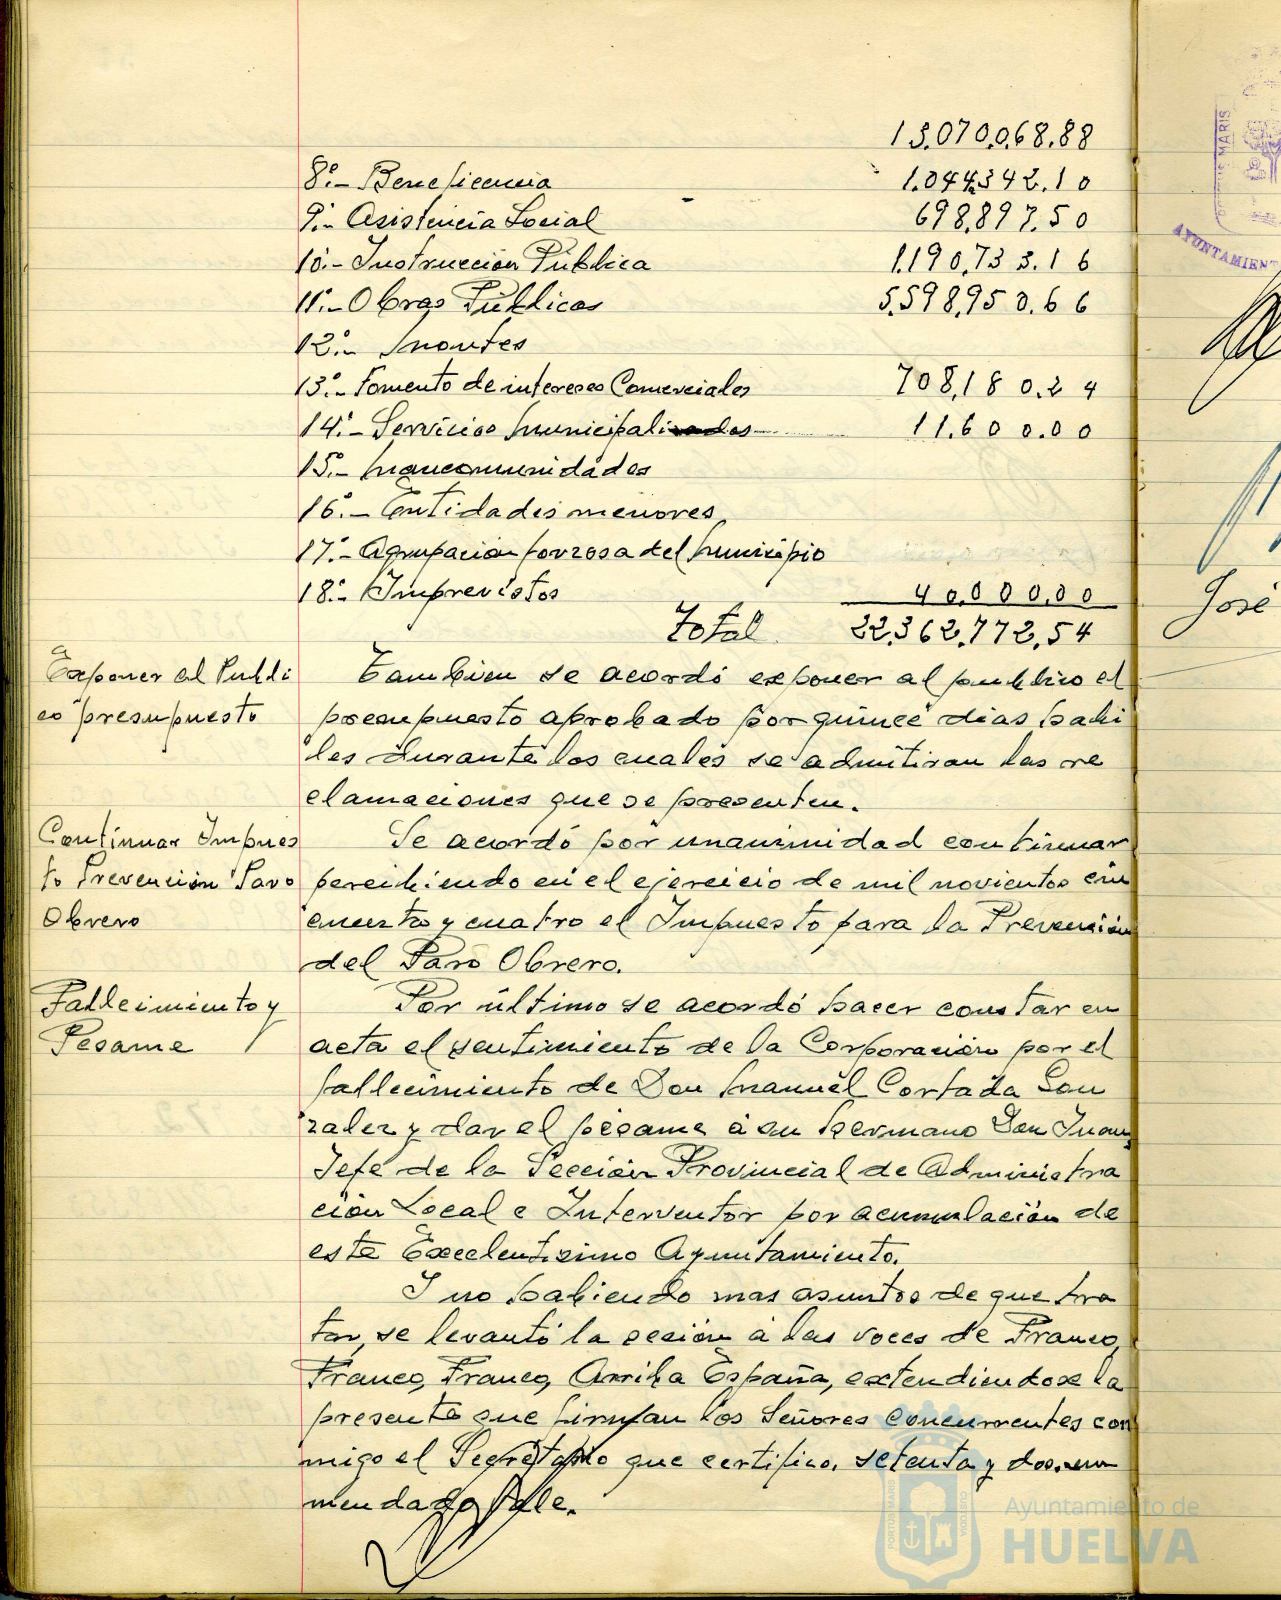 13.070.068.88
8º.- Beneficencia 1.044.342.10
9º.- Asistencia Social 698.897.50
10º.- Instruccion Publica 1.190.733.16
11º.- Obras Publicas 5.598.950.66
12º.- Montes
13º.- Fomento de intereses Comerciales 708.180.24
14º.- Servicios Municipalizados 11.600.00
15º.- Mancomunidades
16º.- Entidades menores
17º.- Agrupación forzosa del Municipio
18º.- Imprevistos 40.000.00
Total 22.362.772.54
Exponer al Publi
co presupuesto
Tambien se acordó exponer al publico el
presupuesto aprobado por quince dias habi
les durante los cuales se admitiran las re
clamaciones que se presenten.
Continuar Impues
to Prevención Paro
Obrero
Se acordó por unanimidad continuar
percibiendo en el ejercicio de mil novientos cin
cuenta y cuatro el Impuesto para la Prevención
del Paro Obrero.
Fallecimiento y
Pesame
Por último se acordó hacer constar en
acta el sentimiento de la Corporación por el
fallecimiento de Don Manuel Cortada Gon
zalez y dar el pésame a su hermano Don Juan,
Jefe de la Sección Provincial de Administra
ción Local e Interventor por acumulación de
este Excelentisimo Ayuntamiento.
Y no habiendo mas asuntos de que tra
tar, se levantó la sesión a las voces de Franco,
Franco, Franco, Arriba España, extendiendose la
presente que firman los Señores concurrentes con
migo el Secretario que certifico. setenta y dos. en
mendado Vale.
MARIS
AYUNTAMIENT
José
PORTUS MARIS
CUSTODIA
Ayuntamiento de
HUELVA